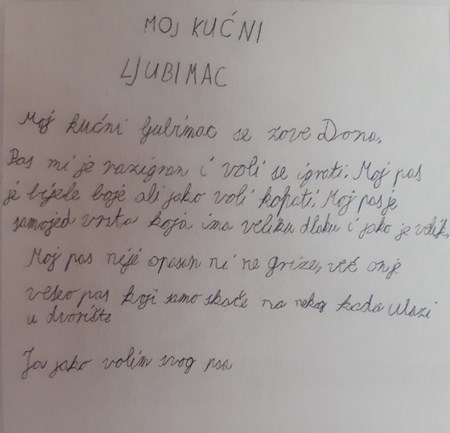 MOJ KUĆNI
LJUBIMAC
Moj kućni ljubimac se zove Dona.
Pas mi je razigran i voli se igrati. Moj pas
je bijele boje ali jako voli kopati. Moj pas je
samojed vrsta koja ima veliku dlaku i jako je velik.
Moj pas nije opasan ni ne grize, već on je
veseo pas koji samo skače na nekog kada ulazi
u dvorište
Ja jako volim svog psa